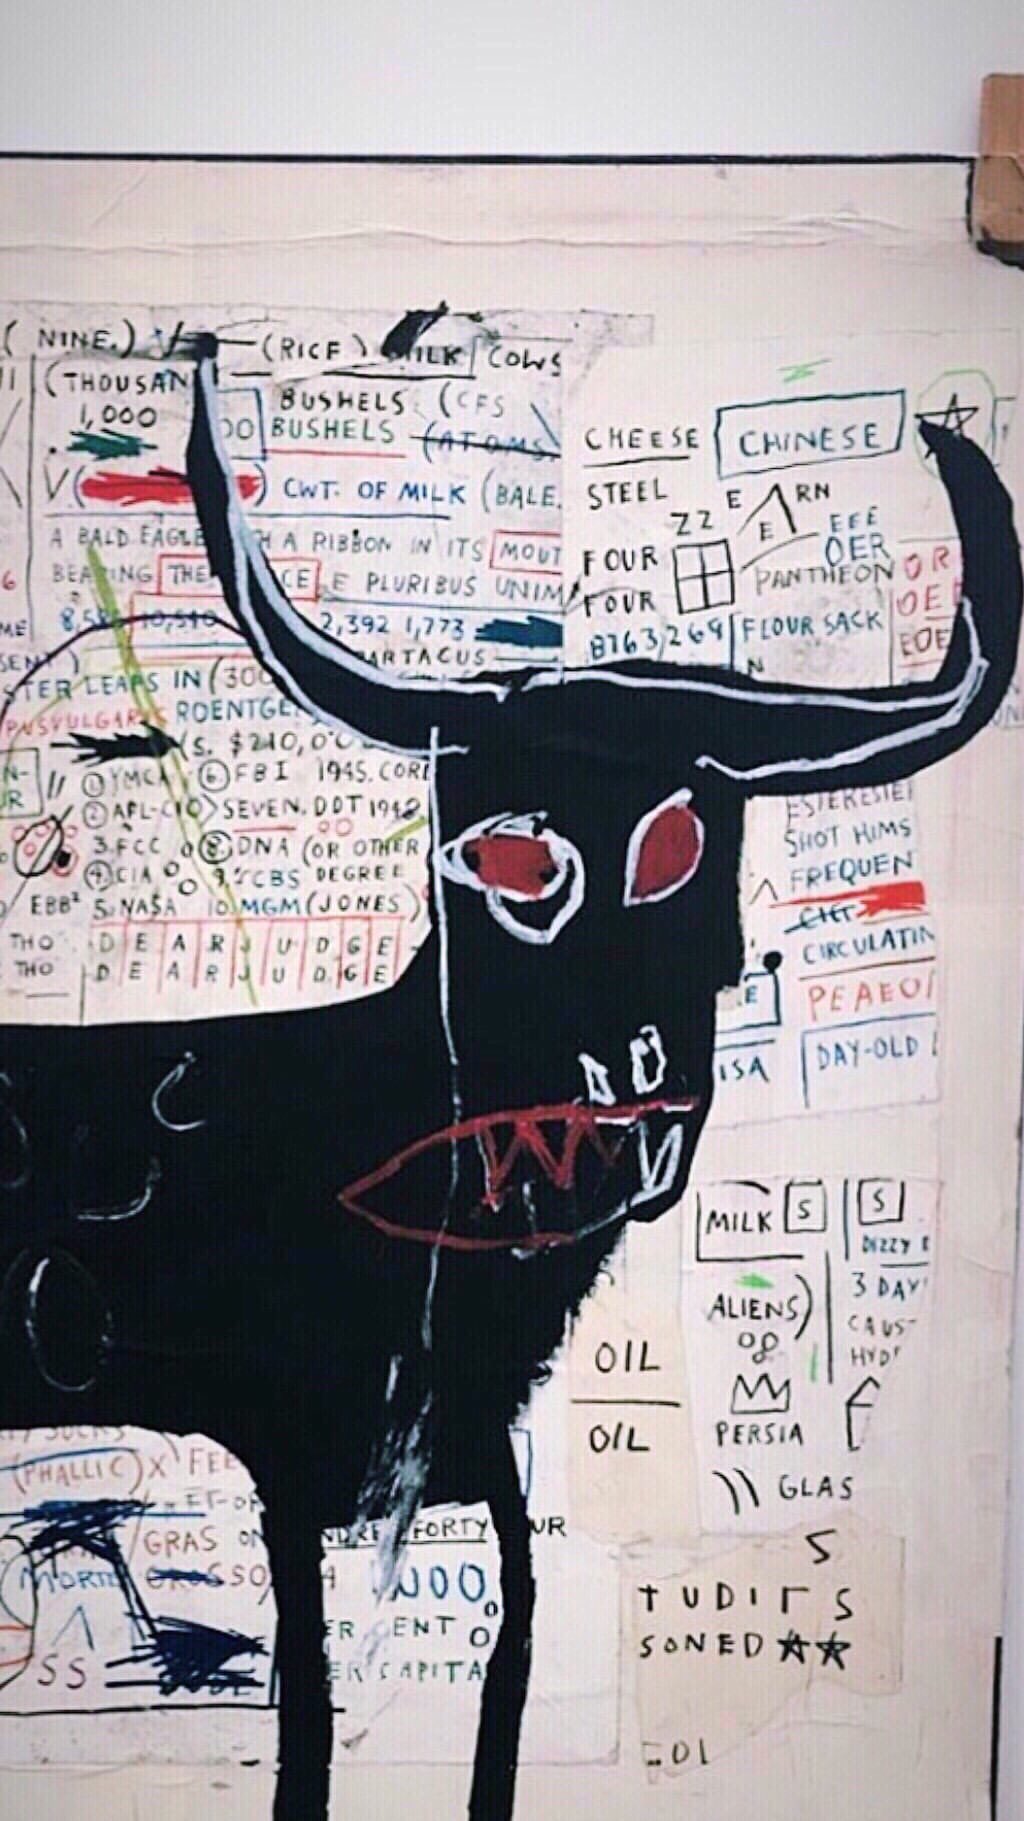 ( NINE.)
(RICE) MILK COWS
(THOUSAN
1,000
BUSHELS (CFS
BUSHELS (ATOMS
V( ) CWT. OF MILK (BALE.
A BALD EAGLE H A RIBBON IN ITS MOUT
BEA ING THE CE E PLURIBUS UNIM
10,540 2,392 1,773
ARTACUS
SENT)
STER LEAPS IN (300
ROENTGE
(S. $210,0
① YMCA ⑥ FBI 1945. COR
② AFL-CIO> SEVEN. DDT 1942
3. FCC ⑧ DNA (OR OTHER
④ CIA 9. CBS DEGREE
EBB² 5. NASA 10. MGM (JONES)
THO D E A R J U D G E
THO D E A R J U D G E
CHEESE
CHINESE
STEEL
E RN
E
ZZ
EEE
OER
FOUR
FOUR
PANTHEON
OR
OE
EOE
8763,269
FLOUR SACK
N
SHOT HIMS
FREQUEN
CIRCULATIN
E
PEAEO
ISA
DAY-OLD
MILK S
S
DIZZY
ALIENS)
3 DAY
CAUS
HYD
OIL
OIL
PERSIA
GLAS
(PHALLIC) X FEE
ET-OF
GRAS ON NDRE FORTY UR
SO
ER CENT
ER CAPITA
SS
S
TUDIES
SONED